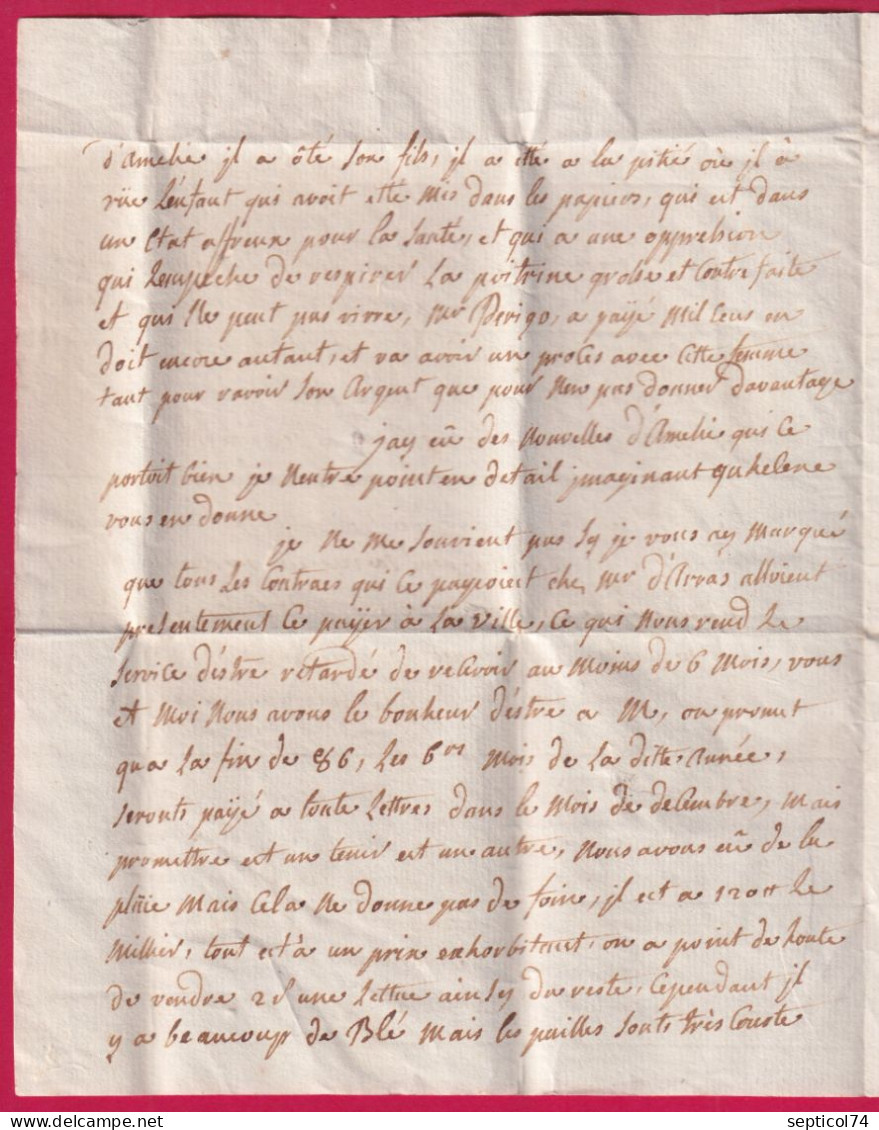 d'Amelie jl a ôté son fils, jl a etté a la pitié où jl à
vüe L'enfant qui avoit etté mis dans les papiers, qui est dans
un Etat affreux pour la santé, et qui a une oppression
qui Lempeche de respirer La poitrine grosse et Contre faite
et qui Ne peut pas vivre, Mr Perigo, a payé Mil Ecus en
doit encore autant, et va avoir un proces avec Cette femme
tant pour ravoir son Argent que pour Nen pas donner davantage
jay eü des Nouvelles d'Amelie qui Ce
portoit bien je Nentre point en detail jmaginant quhelene
vous en donne
je Ne Me souvient pas sy je vous ay Marqué
que tous Les Contraes qui Ce payoient chez Mr d'Arras alloient
presentement Ce payer à La ville, Ce qui Nous rend Le
service d'éstre retardé de reCevoir au Moins de 6 Mois, vous
et Moi Nous avons le bonheur d'éstre a M, on promet
qua La fin de 86, Les 6 rs Mois de La ditte Année,
seronts payé a toute Lettres dans le Mois de deCembre, Mais
promettre est un tenir est un autre, Nous avons eü de la
plüie Mais Cela Ne donne pas de foin, jl est a 120 tt le
Millier, tout est à un prix exhorbitant, on a point de honte
de vendre 2 s une Lettue ainsy du reste, Cependant jl
y a beaucoup de Blé Mais les pailles sonts très Courte
septicol74